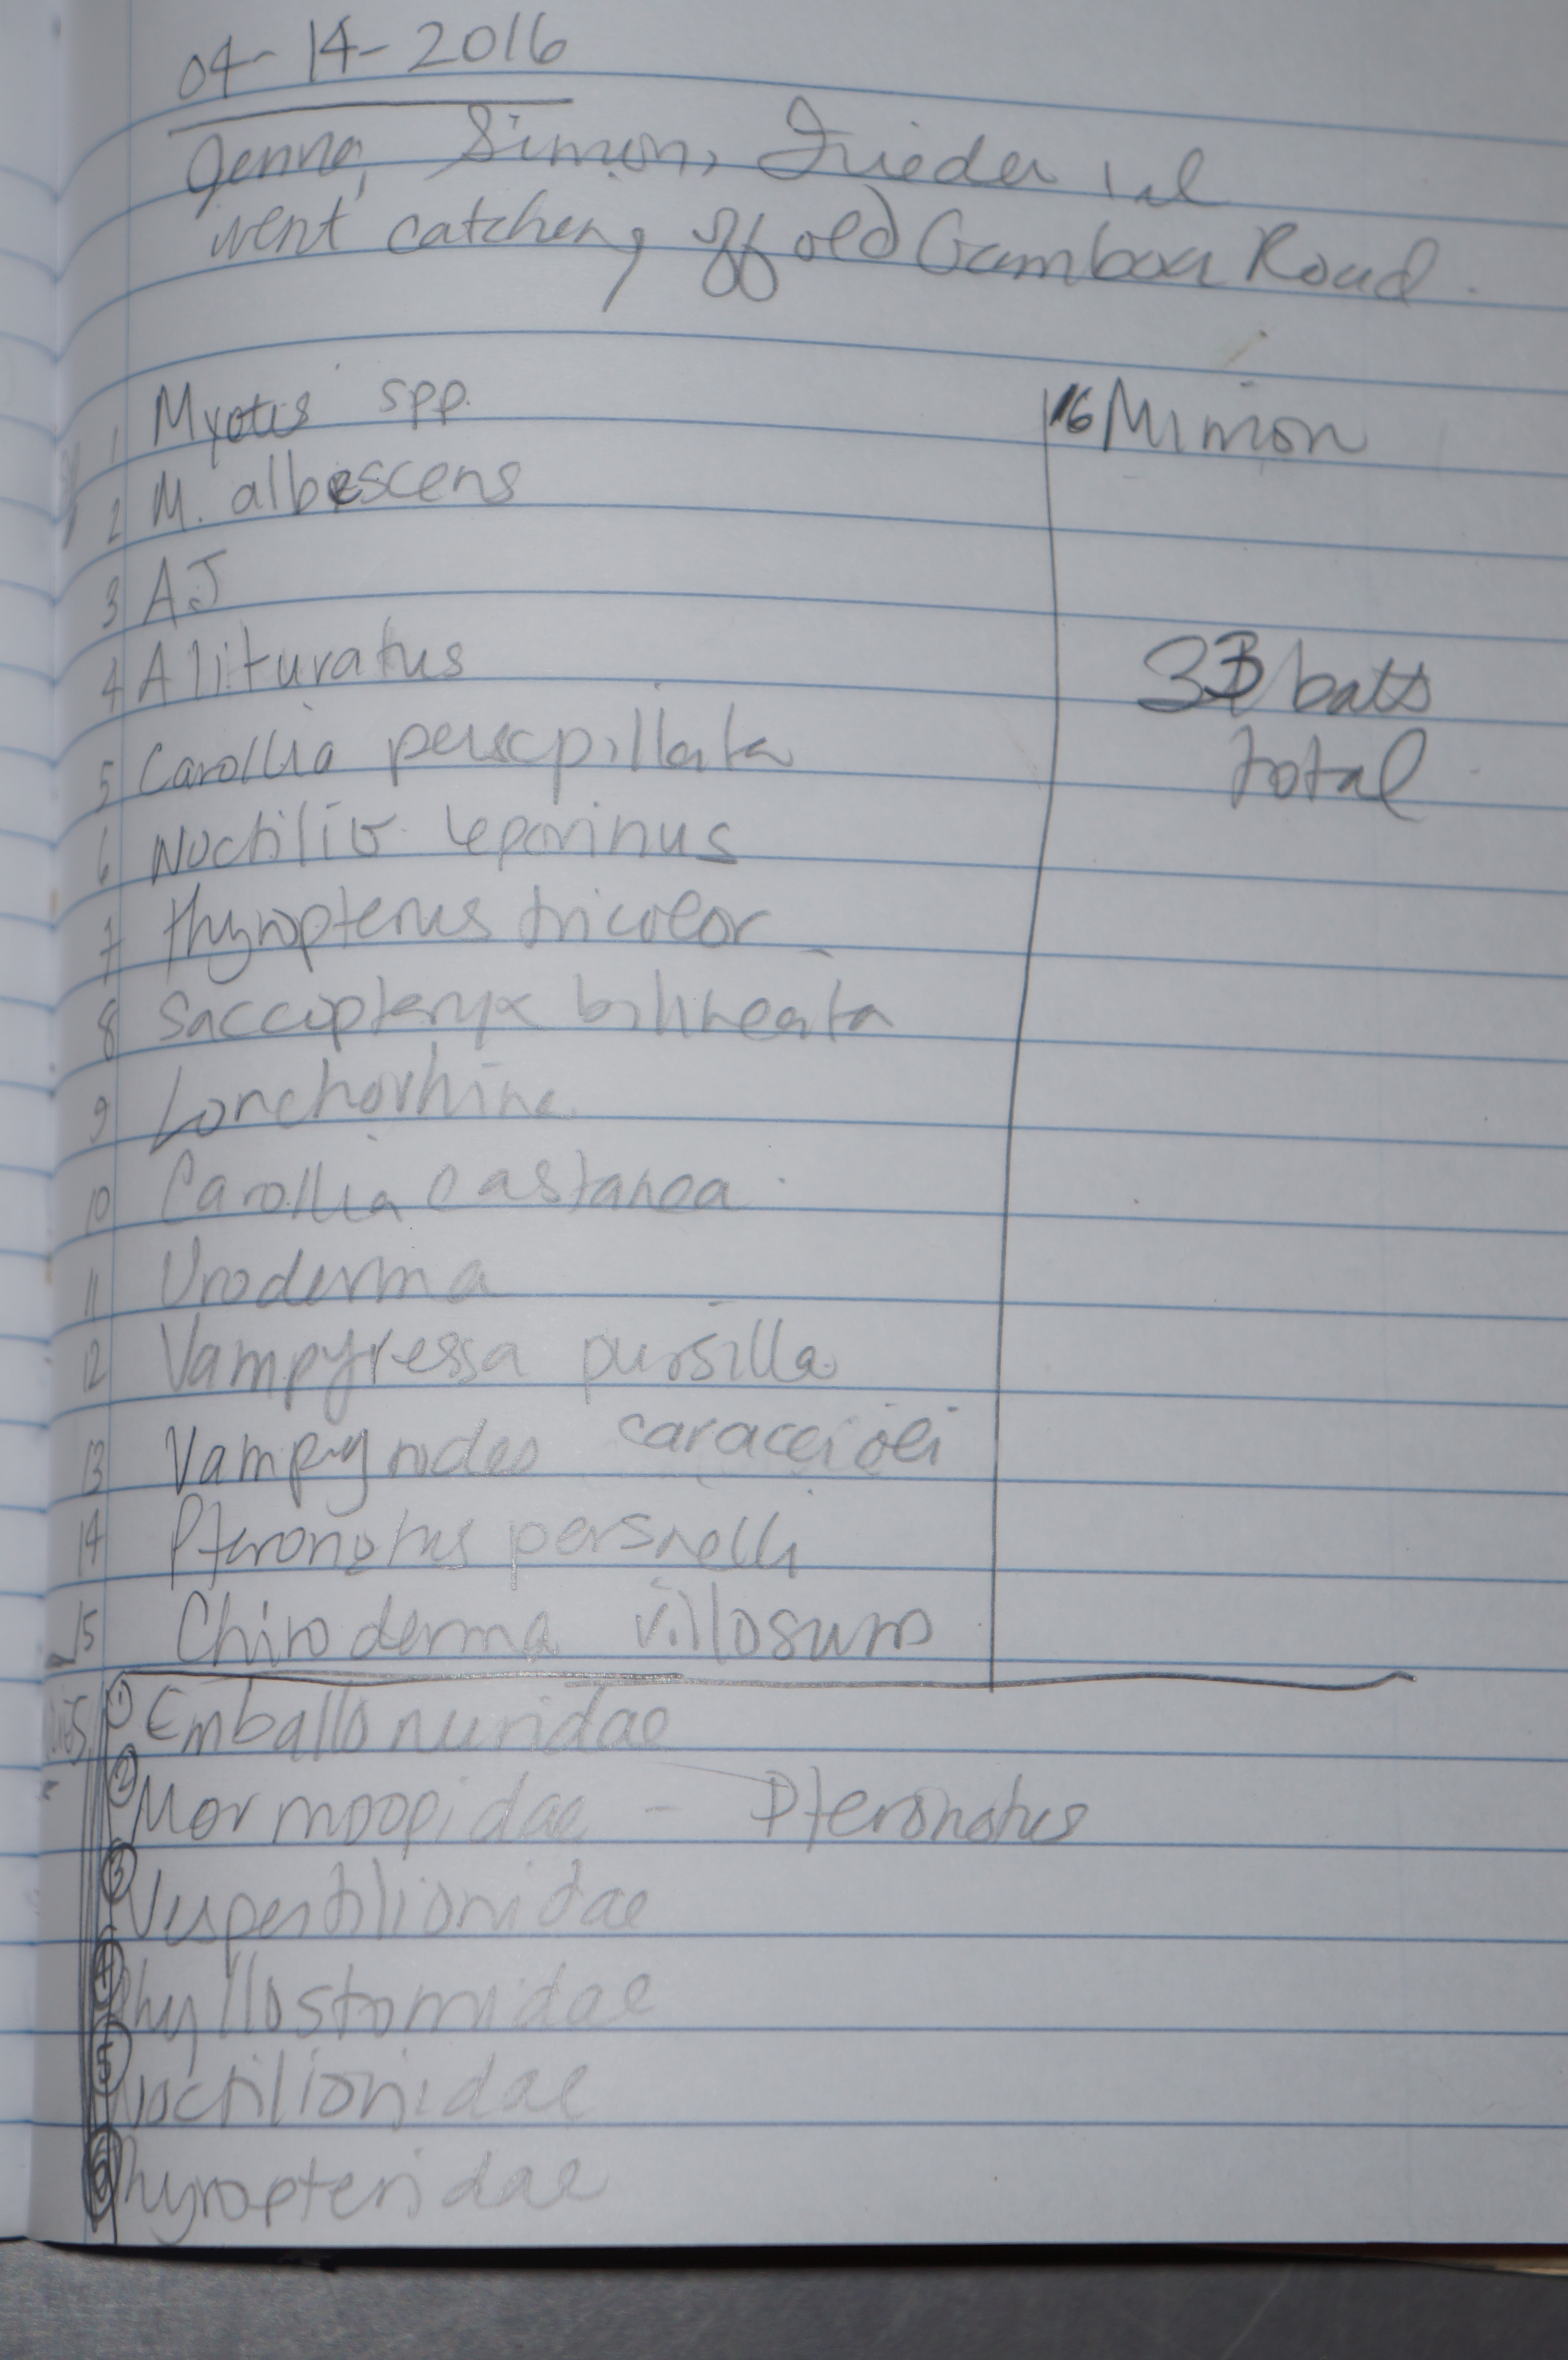 04-14-2016
Jenna, Simon, Frieder
went catching off old Gamboa Road.
1 Myotis spp.
2 M. albescens
3 AJ
4 A lituratus
5 Carollia perscpillata
6 Noctilio leporinus
7 Thyropterus tricolor
8 Saccopteryx bilineata
9 Lonchorhina
10 Carollia castanea
11 Uroderma
12 Vampyressa pursilla
13 Vampyrodes caraccioli
14 Pteronotus parsnelli
15 Chiroderma villosum
16 Mimon
33 bats
total
① Emballonuridae
② Mormoopidae - Pteronotus
③ Vespertilionidae
④ Phyllostomidae
⑤ Noctilionidae
⑥ Thyropteridae